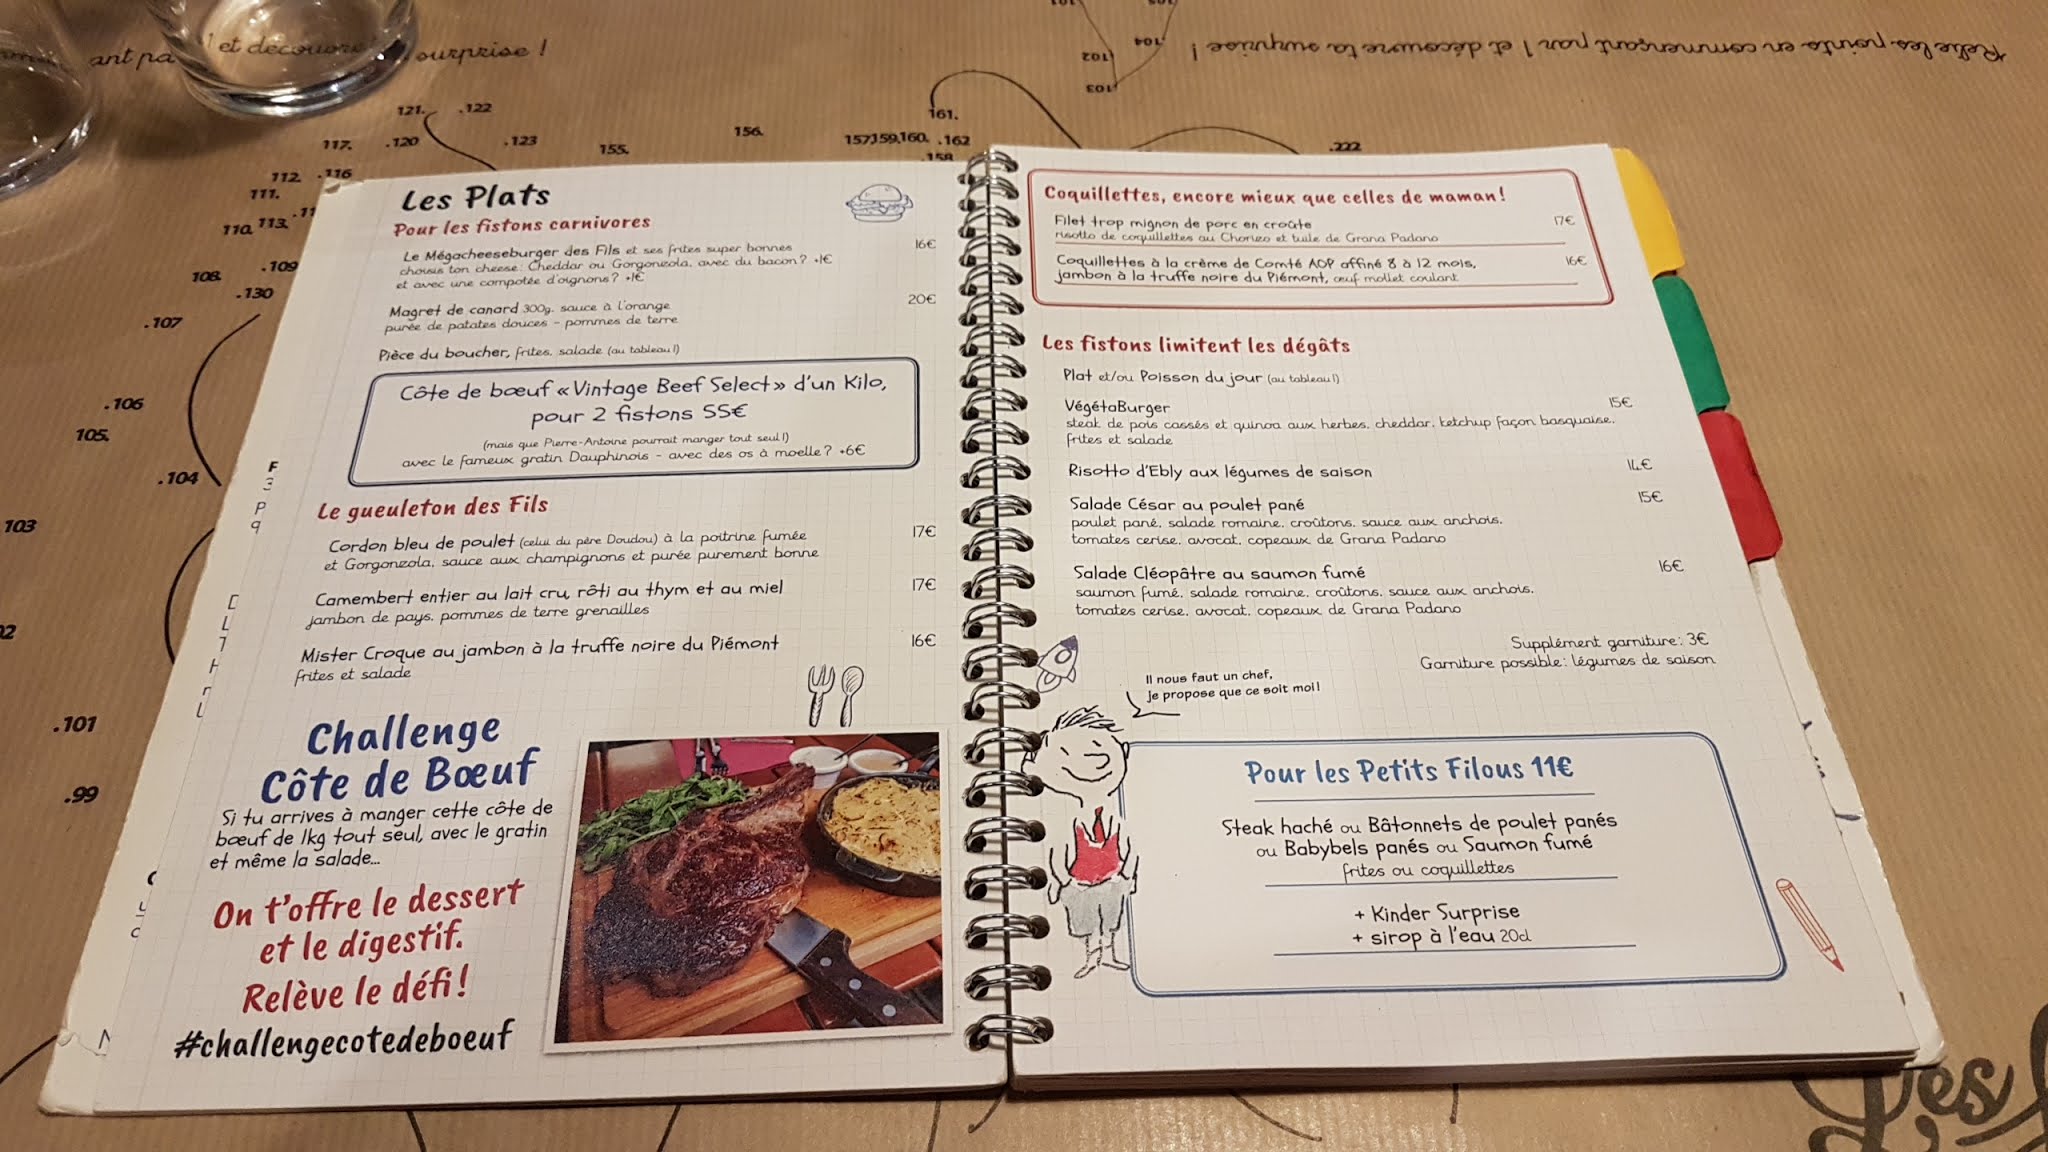 ant pa
et découvre
surprise !
Relie les points en commençant par 1 et découvre la surprise !
101
105
102
.104
103
121.
.122
161.
117.
.120
.123
155.
156.
157.
159.
160.
.162
.158
.222
112.
.116
111.
.11
110.
113.
108.
.109
.130
.107
.106
105.
.104
103
02
.101
.99
Les Plats
Pour les fistons carnivores
Le Mégacheeseburger des Fils et ses frites super bonnes 16€
choisis ton cheese: Cheddar ou Gorgonzola, avec du bacon? +1€
et avec une compotée d'oignons? +1€
Magret de canard 300g, sauce à l'orange 20€
purée de patates douces - pommes de terre
Pièce du boucher, frites, salade (au tableau!)
Côte de bœuf «Vintage Beef Select» d'un Kilo,
pour 2 fistons 55€
(mais que Pierre-Antoine pourrait manger tout seul!)
avec le fameux gratin Dauphinois - avec des os à moelle? +6€
Le gueuleton des Fils
Cordon bleu de poulet (celui du père Doudou) à la poitrine fumée 17€
et Gorgonzola, sauce aux champignons et purée purement bonne
Camembert entier au lait cru, rôti au thym et au miel 17€
jambon de pays, pommes de terre grenailles
Mister Croque au jambon à la truffe noire du Piémont 16€
frites et salade
Challenge
Côte de Bœuf
Si tu arrives à manger cette côte de
bœuf de 1kg tout seul, avec le gratin
et même la salade...
On t'offre le dessert
et le digestif.
Relève le défi!
#challengecotedeboeuf
Coquillettes, encore mieux que celles de maman!
Filet trop mignon de porc en croûte 17€
risotto de coquillettes au Chorizo et tuile de Grana Padano
Coquillettes à la crème de Comté AOP affiné 8 à 12 mois, 16€
jambon à la truffe noire du Piémont, œuf mollet coulant
Les fistons limitent les dégâts
Plat et/ou Poisson du jour (au tableau!)
VégétaBurger 15€
steak de pois cassés et quinoa aux herbes, cheddar, ketchup façon basquaise,
frites et salade
Risotto d'Ebly aux légumes de saison 14€
Salade César au poulet pané 15€
poulet pané, salade romaine, croûtons, sauce aux anchois,
tomates cerise, avocat, copeaux de Grana Padano
Salade Cléopâtre au saumon fumé 16€
saumon fumé, salade romaine, croûtons, sauce aux anchois,
tomates cerise, avocat, copeaux de Grana Padano
Supplément garniture: 3€
Garniture possible: légumes de saison
Il nous faut un chef,
je propose que ce soit moi!
Pour les Petits Filous 11€
Steak haché ou Bâtonnets de poulet panés
ou Babybels panés ou Saumon fumé
frites ou coquillettes
+ Kinder Surprise
+ sirop à l'eau 20cl
Les